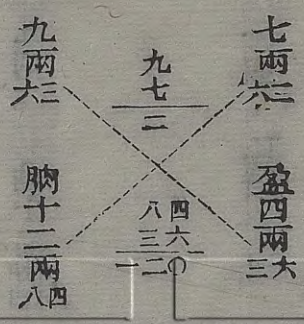 七兩
六三
盈四兩
三六
九
七
二
八四
三六
一二〇
九兩
六三
朒十二兩
八四